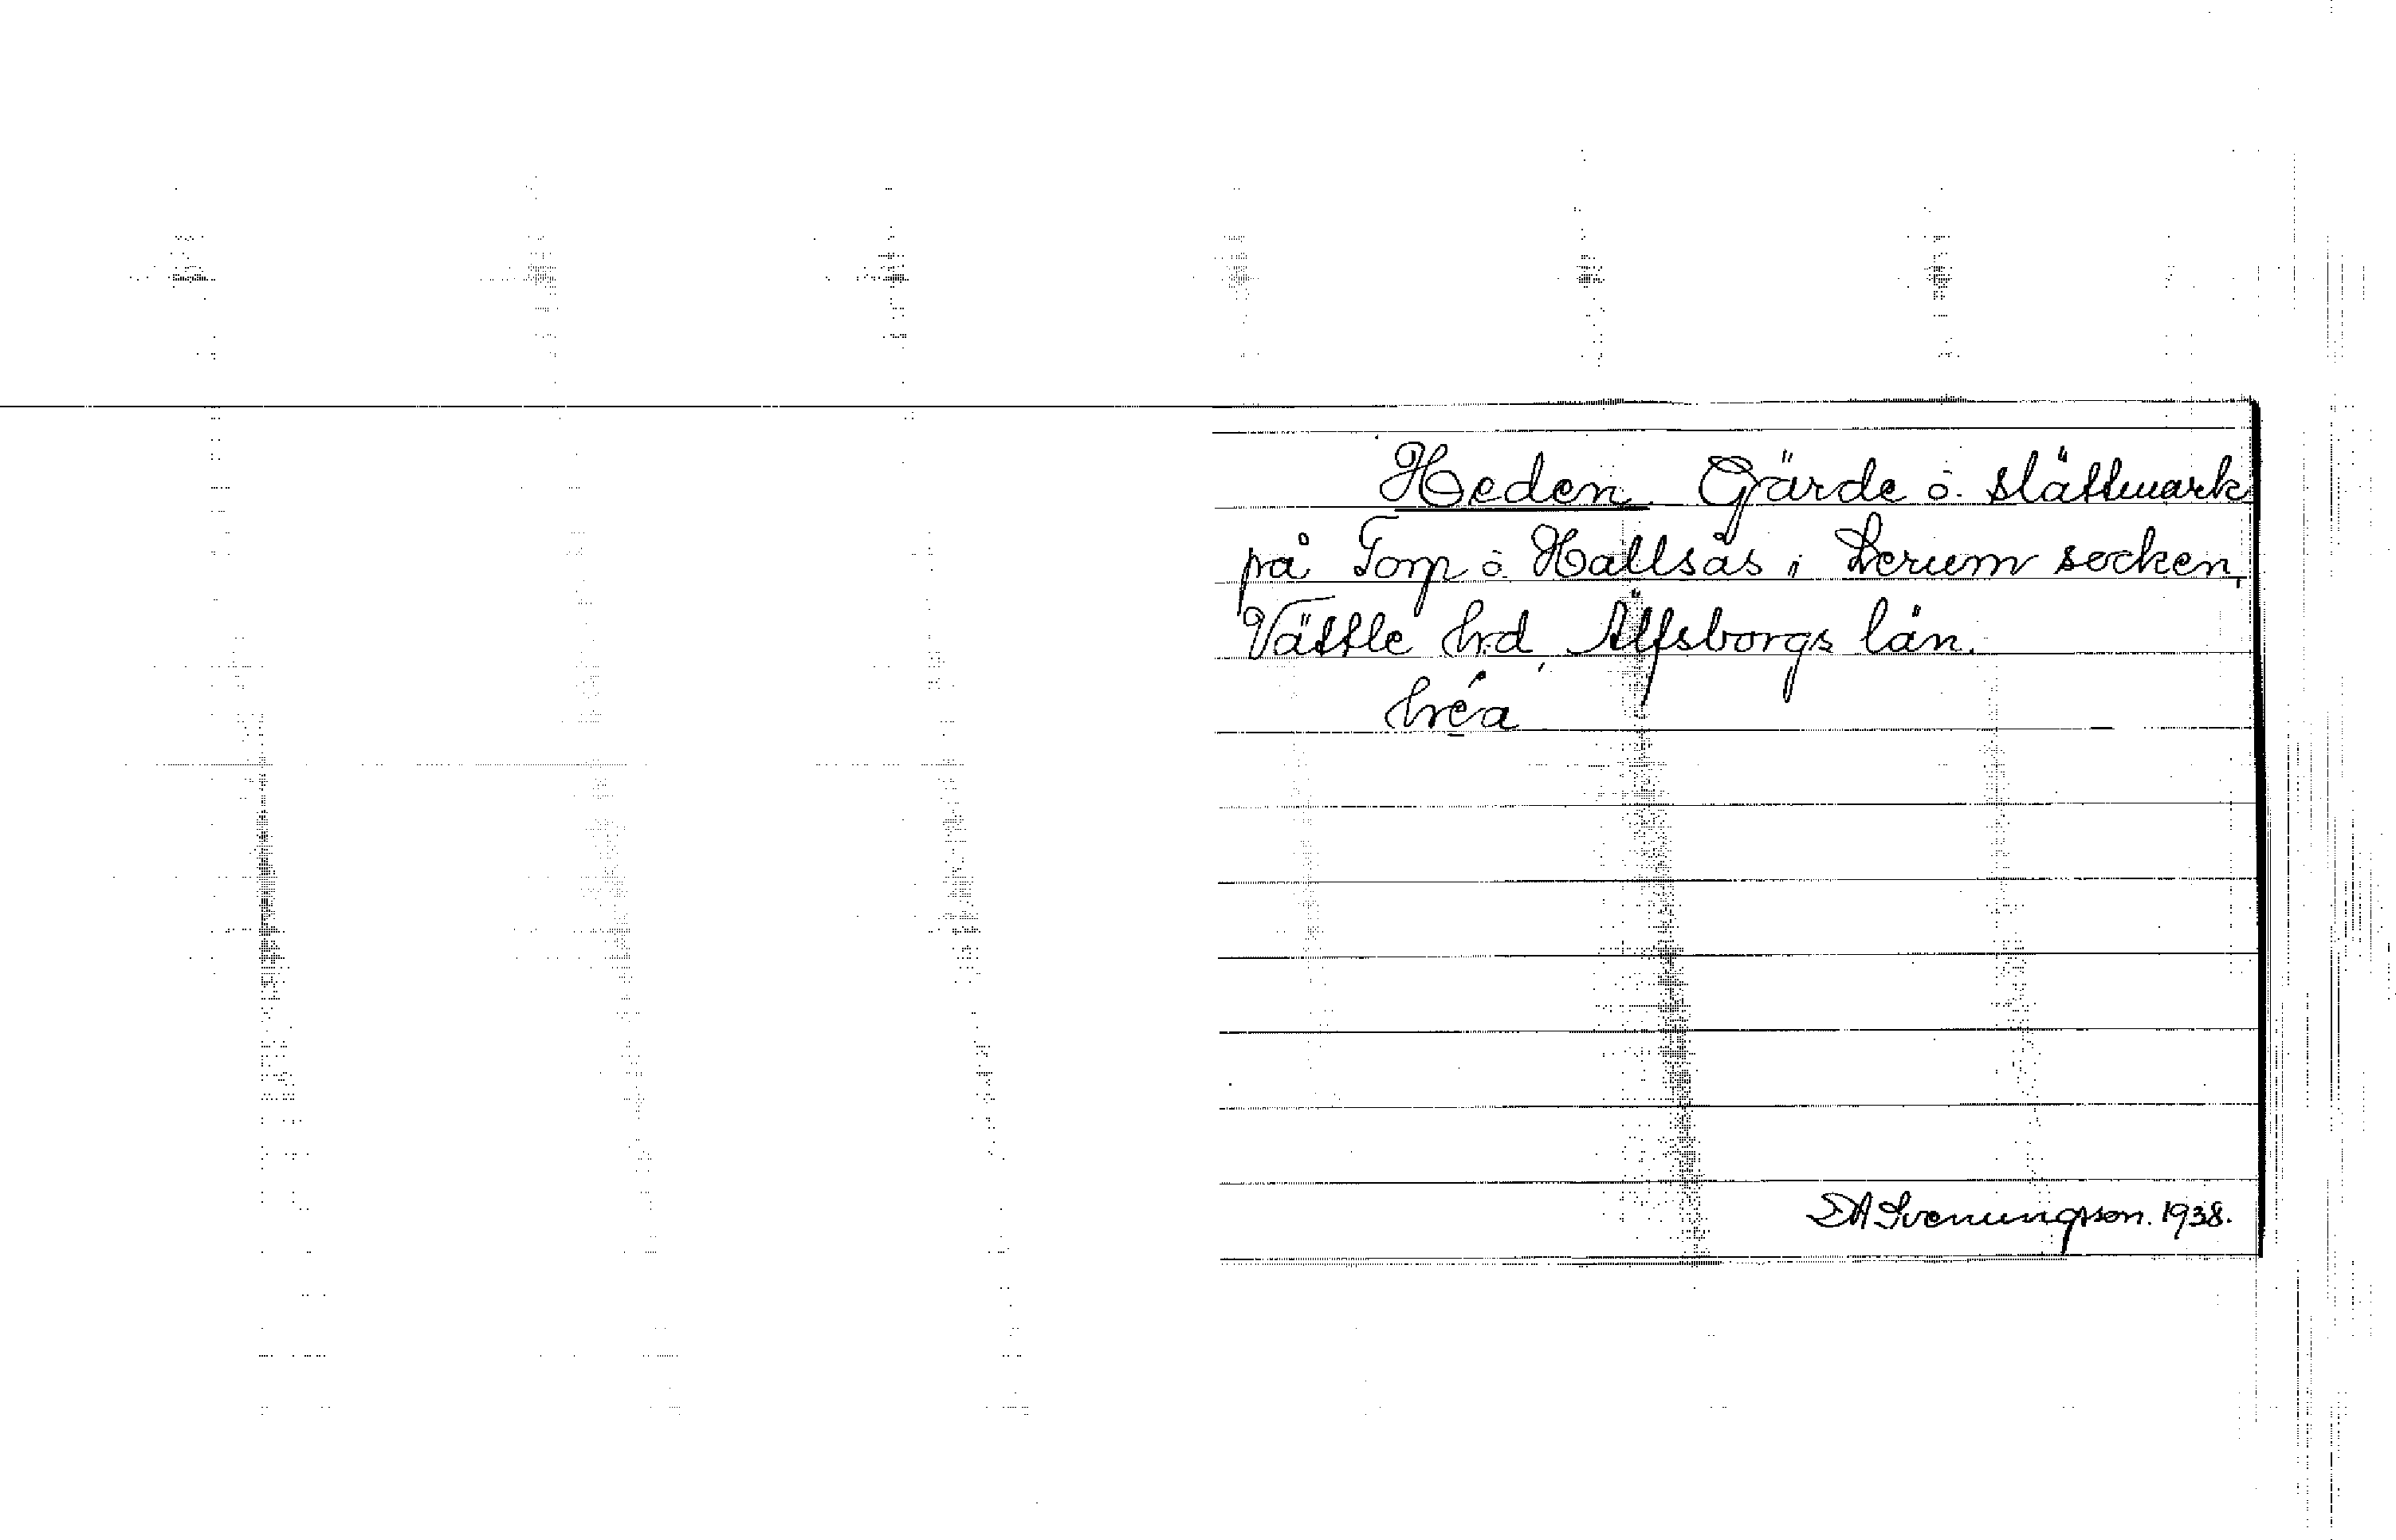 Heden. Gärde o. slättmark
på Torp o. Hallsås i Lerum socken,
Vättle hrd, Älfsborgs län.
hréa
DA Svenungsson. 1938.